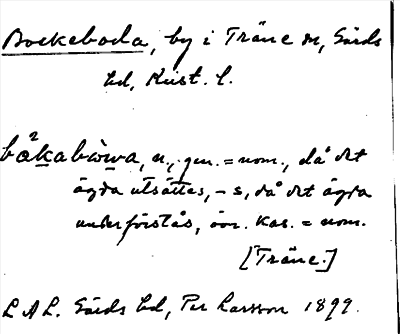 Bockeboda, by i Träne sn, Gärds
hd, Krist. l.
båkabåwa, n., gen. = nom., då det
ägda utsättes, -s, då det ägda
underförstås, övr. kas. = nom.
[Träne.]
LAL. Gärds hd, Per Larsson 1899.